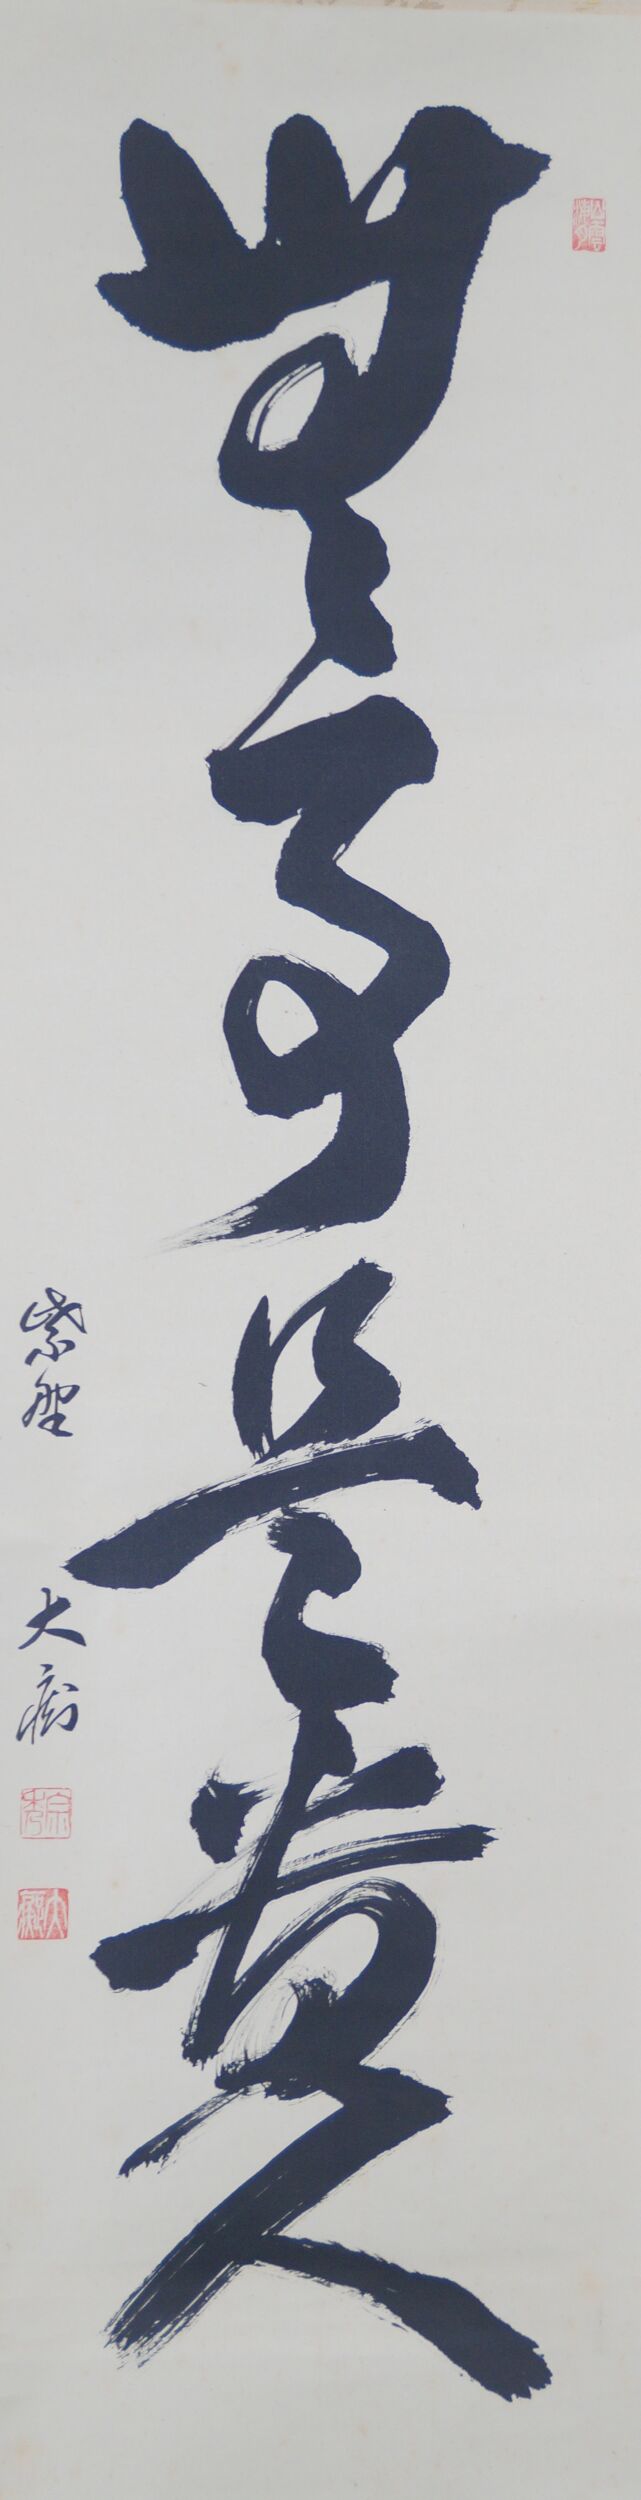 無事是貴人
紫野 大痴